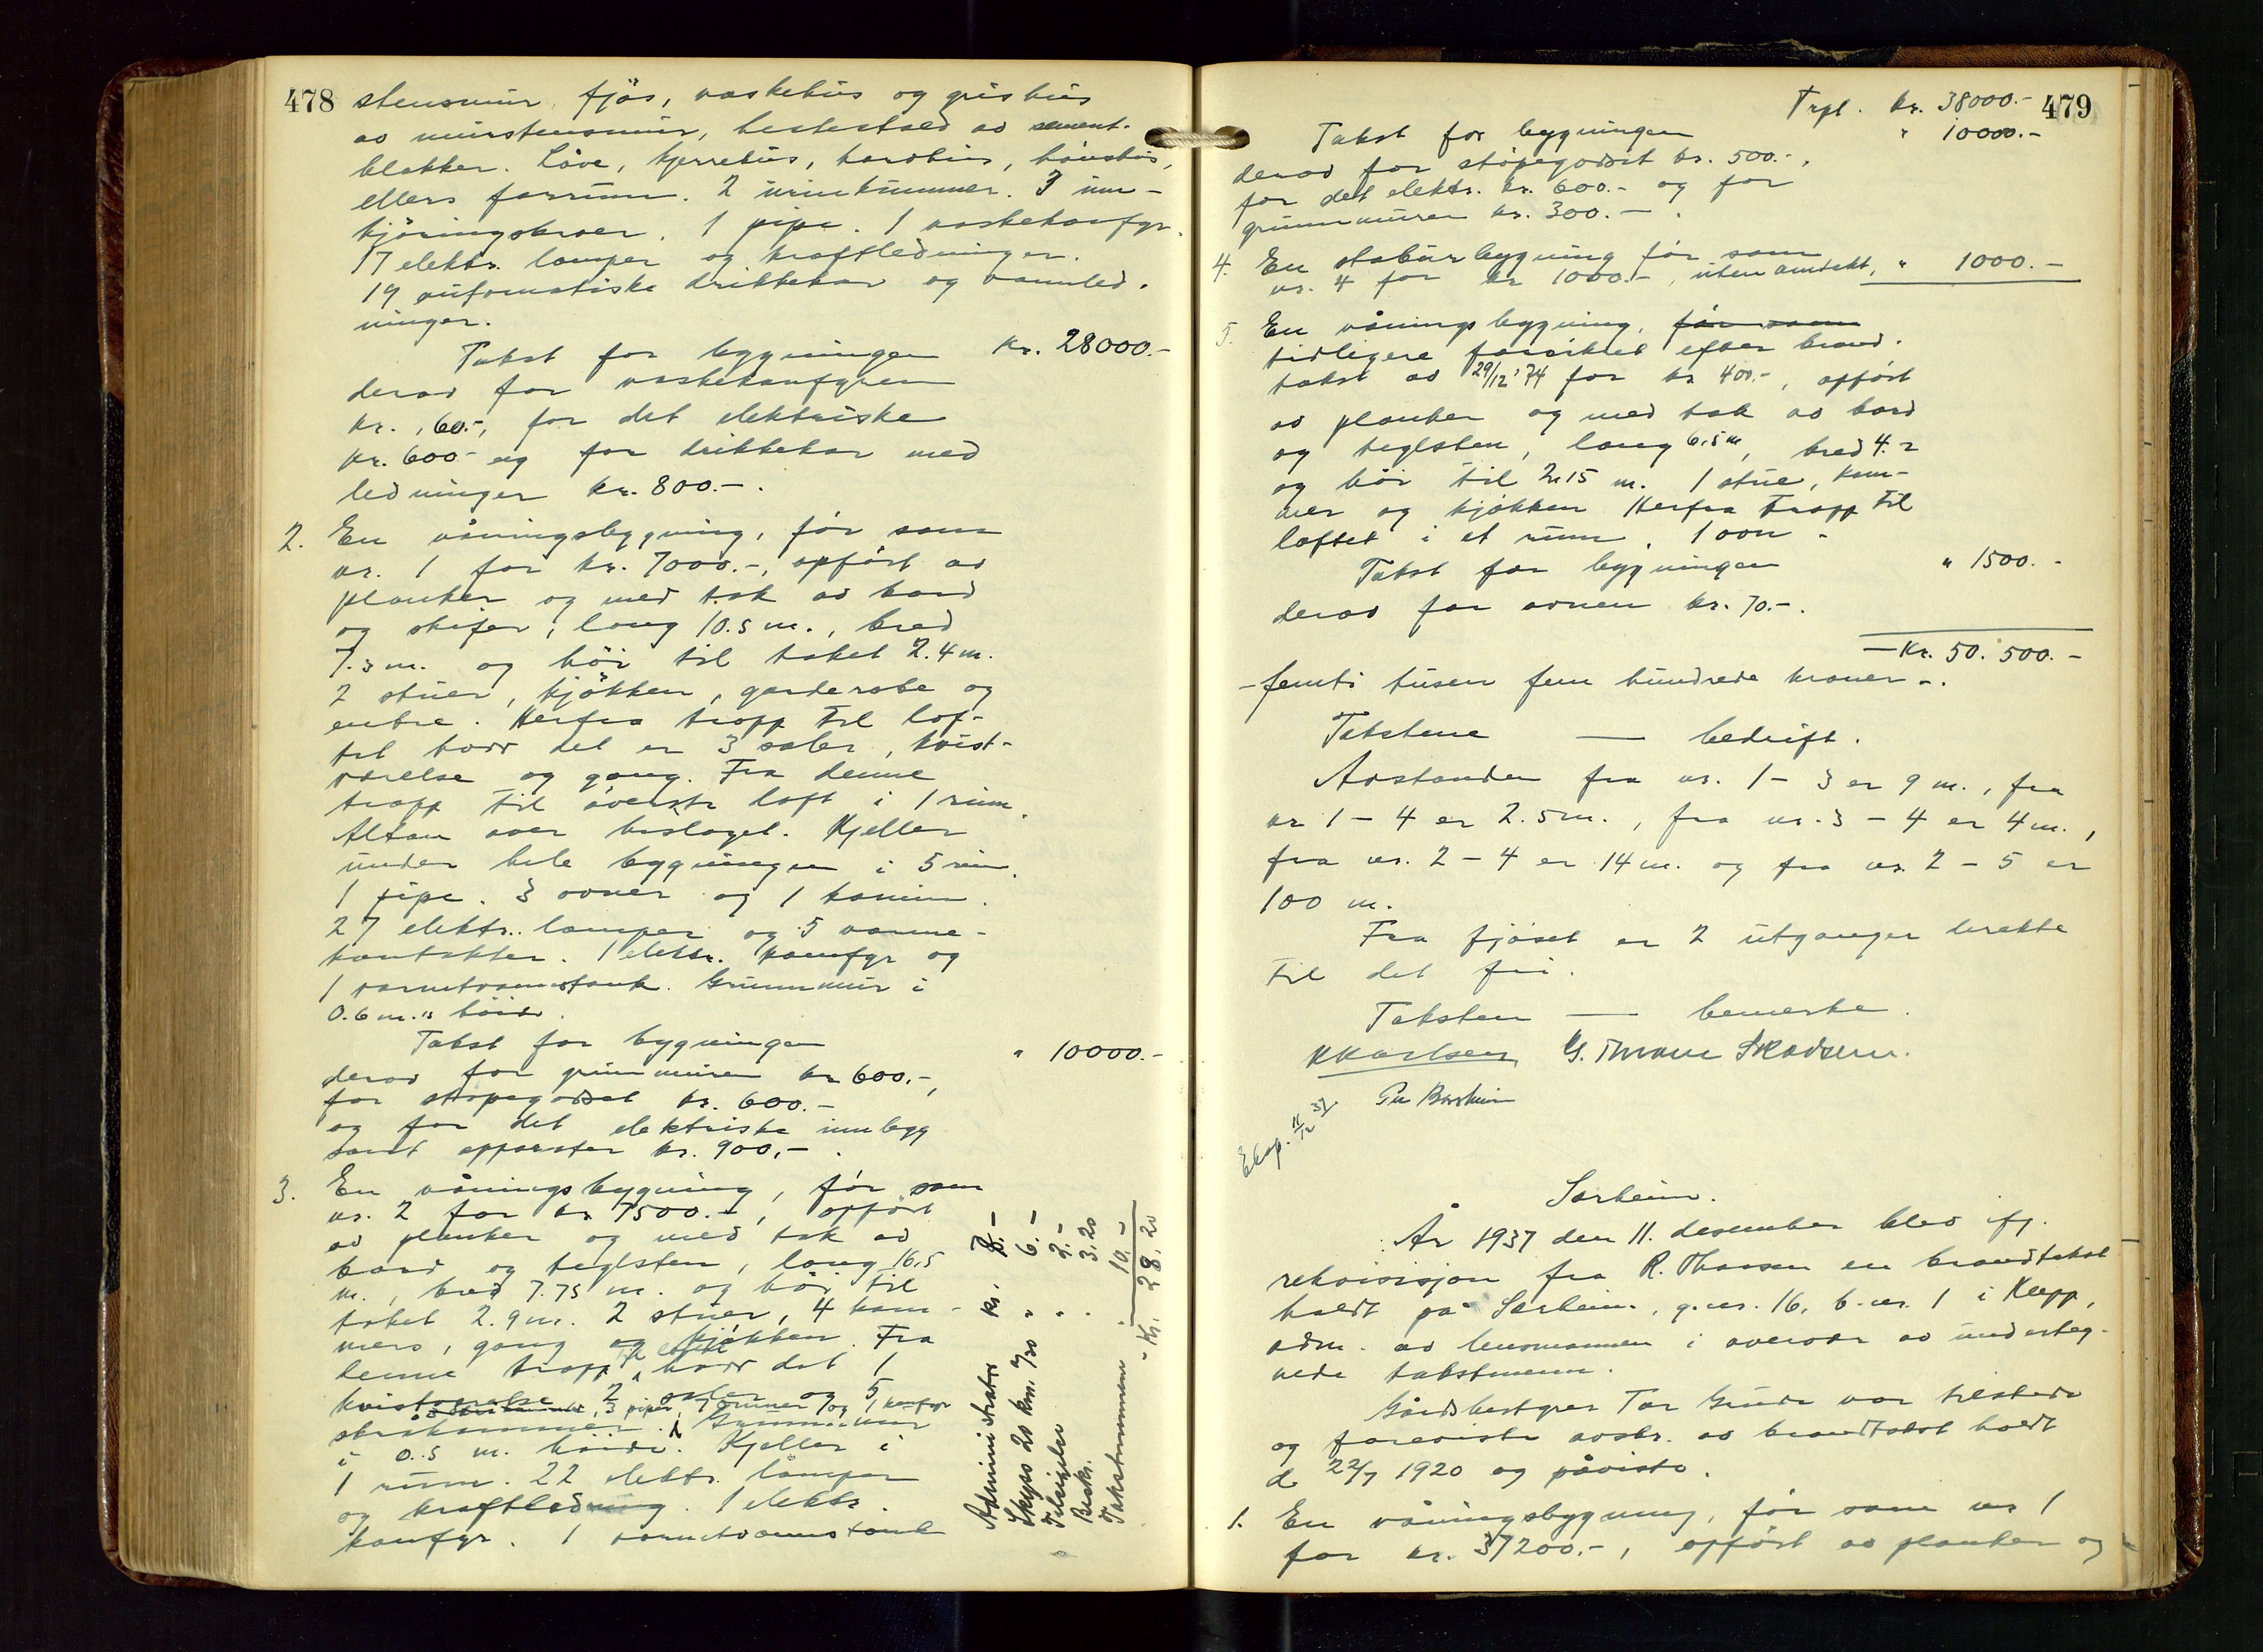 478
stensmur, fjös, vaskehus og grishus
av murstensmur, hestestald av sement-
blokker. Låve, kjerrehus, hønsehus,
ellers forrum. 2 urinkummer. 3 inn-
kjöringsbroer. 1 pipe. 1 vaskekomfyr.
17 elektr. lamper og kraftledninger.
19 automatiske drikkekar og vannled-
ninger.
Takst for bygningen kr. 28000.-
derav for vaskekomfyren
kr. 60.-, for det elektriske
kr. 600.- og for drikkekar med
ledninger kr. 800.-.
2. En våningsbygning, før som
nr. 1 for kr. 7000.-, opført av
planker og med tak av bord
og skifer, lang 10.5 m., bred
7.3 m. og höi til taket 2.4 m.
2 stuer, kjökken, garderobe og
entre. Herfra trapp til lof-
tet hvor det er 3 saler, kvist-
værelse og gang. Fra denne
trapp til överste loft i 1 rum.
Altan over bislaget. Kjeller
under hele bygningen i 5 rum.
1 pipe. 3 ovner og 1 kamin.
27 elektr. lamper og 5 varme-
kontakter. 1 elektr. komfyr og
1 varmtvannstank. Grunnmur i
0.6 m.s höide.
Takst for bygningen " 10000.-
derav for grunnmuren kr 600.-,
for støpegodset kr. 600.-
og for det elektriske innlegg
samt apparater kr. 900,-.
3. En våningsbygning, før som
nr. 2 for kr 7500.-, opført
av planker og med tak av
bord og teglsten, lang 16,5
m., bred 7.75 m. og höi til
taket 2.9 m. 2 stuer, 4 kam-
mers, gang og kjökken. Fra
denne trapp til loftet hvor det 1
kvistværelse, 2 saler og 5
3 piper, 7 ovner og 1 komfyr
skråkammer. Grunnmur
i 0.5 m. höide. Kjeller i
1 rum. 22 elektr. lamper
og kraftledning. 1 elektr.
komfyr. 1 varmtvannstank
Administrator kr. 8.-
Skyss 20 km. 7/30 " 6.-
Tilsigelse " 2.-
Beskr. " 3.20
Takstmennene 10.-
Kr. 28.20
479
Trpl. kr. 38000.-
Takst for bygningen " 10000.-
derav for støpegodset kr. 500.-,
for det elektr. kr. 600.- og for
grunnmuren kr. 300.-.
4. En stabursbygning før som
nr. 4 for kr 1000.-, uten " 1000.-
5. En våningsbygning, før som
tidligere forsikret efter brand-
takst av 29/12 '74 for kr 400.-, opført
av planker og med tak av bord
og teglsten, lang 6,5 m, bred 4.2
og höi til 2.15 m. 1 stue, kam-
mer og kjökken Herfra trapp til
loftet i et rum. 1 ovn.
Takst for bygningen " 1500.-
derav for ovnen kr. 70.-.
- Kr. 50.500.-
- femti tusen fem hundrede kroner -.
Takstene — bedrift.
Avstanden fra nr. 1 - 3 er 9 m., fra
nr 1 - 4 er 2.5 m., fra nr. 3 - 4 er 4 m.,
fra nr. 2 - 4 er 14 m. og fra nr. 2 - 5 er
100 m.
Fra fjöset er 2 utganger direkte
til det fri.
Taksten — bemerke.
K Karlsen G. Thrane Skadsem.
Per Borsheim
Eksp. 11/12 37.
Særheim.
År 1937 den 11. desember blev efg.
rekvisisjon fra R. Thorsen en brandtakst
holdt på Særheim, g.nr. 16, b.nr. 1 i Klepp,
adm. av lensmannen i overvær av underteg-
nede takstmenn.
Gårdsbestyrer Tor Grude var tilstede
og foreviste avskr. av brandtakst holdt
d. 22/7 1920 og påviste.
1. En våningsbygning, før som nr 1
for kr. 37200.-, opført av planker og